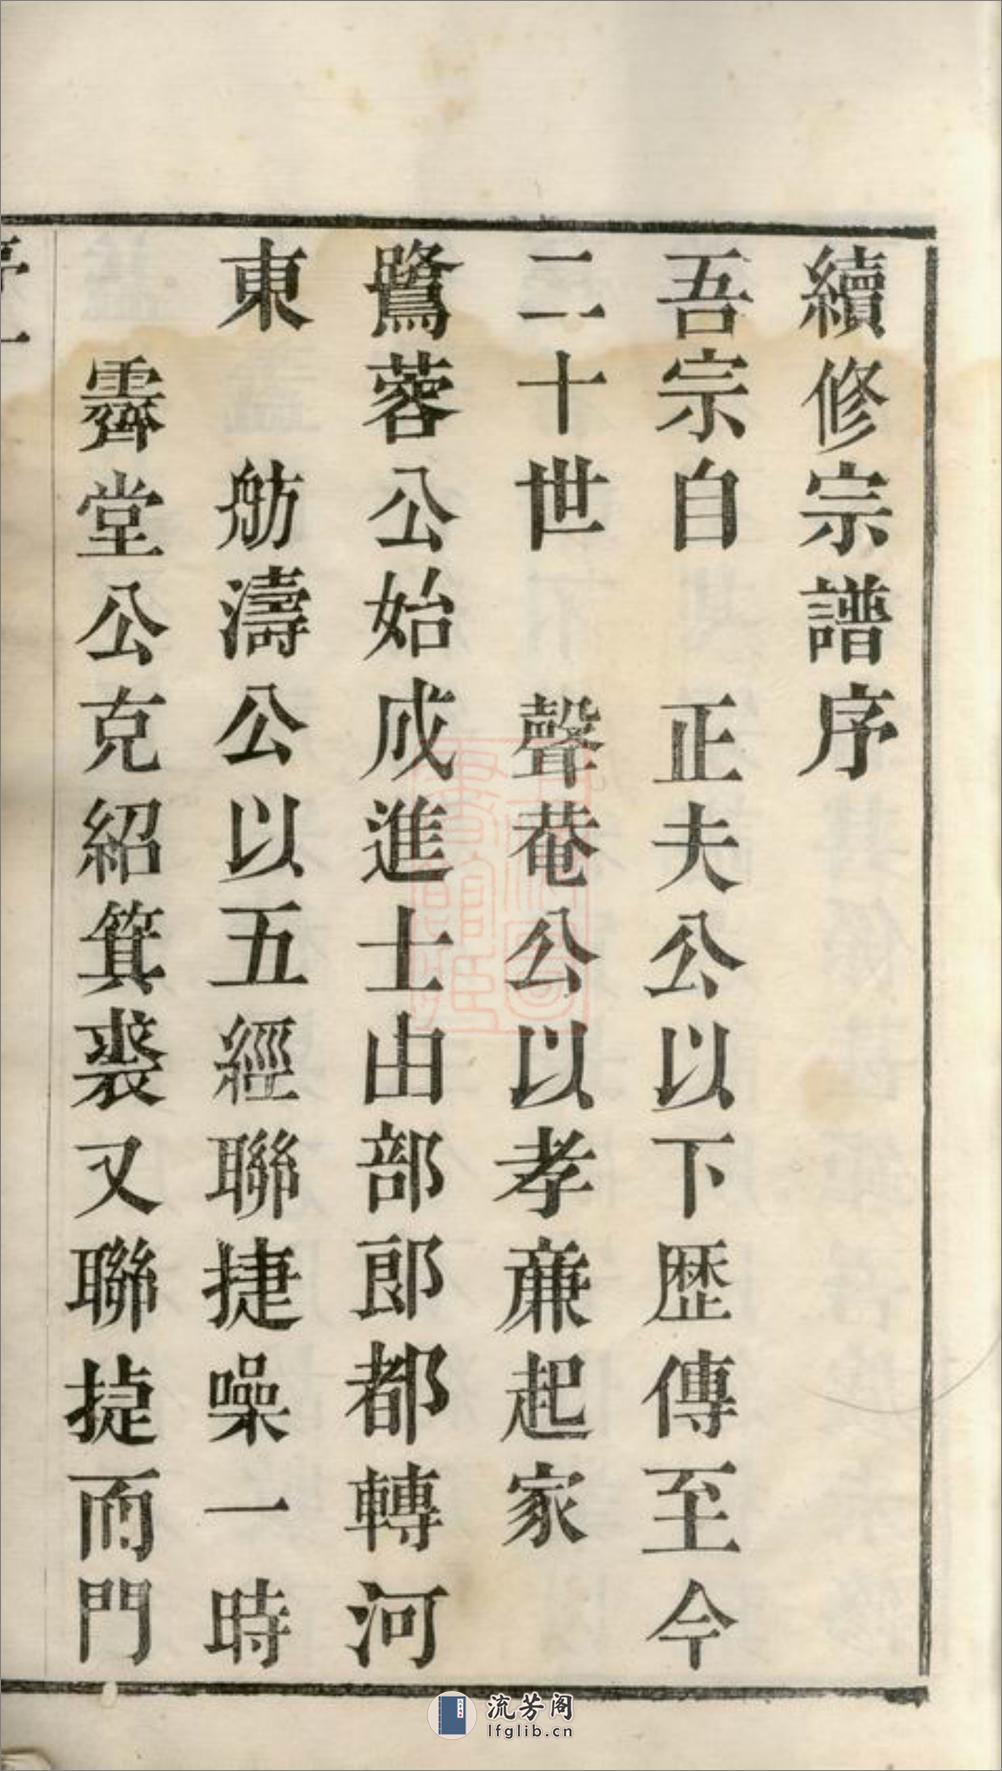 續修宗譜序
吾宗自　正夫公以下歴傳至今
二十世　聲菴公以孝廉起家
鷺蓉公始成進士由部郎都轉河
東　舫濤公以五經聯捷噪一時
霽堂公克紹箕裘又聯捷而門
流芳阁
lfglib.cn